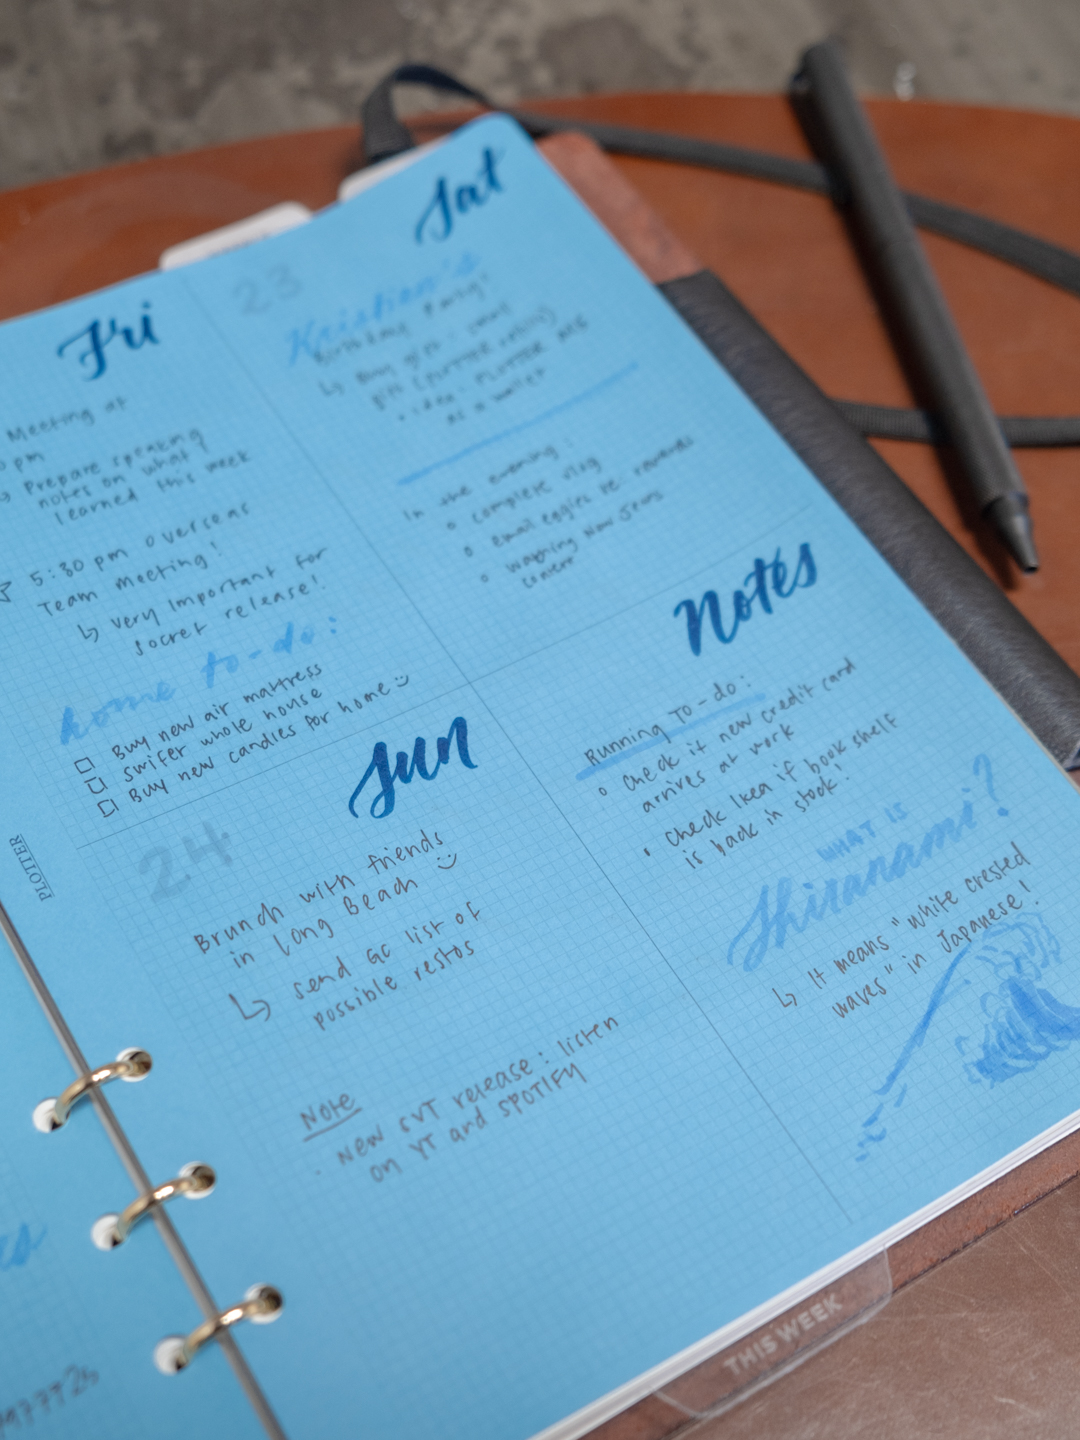 Fri
Meeting at
pm
Prepare speaking
notes on what I
learned this week
☆ 5:30 pm overseas
Team meeting!
↳ very important for
secret release!
home to-do:
☐ Buy new air mattress
☐ Swifer whole house
☐ Buy new candles for home
Sat
23
Kristian's
Birthday Party!
↳ Buy gift: small
gift (PLOTTER
• idea: PLOTTER
as a wallet
In the evening:
o complete vlog
o email eggies re:
o washing New Jeans
concert
Sun
24
Brunch with friends
in Long Beach
↳ send GC list of
possible restos
Note
· New SVT release: listen
on YT and SPOTIFY
Notes
Running To-do:
o Check if new credit card
arrives at work
• Check Ikea if book shelf
is back in stock!
WHAT IS
Shiranami?
↳ It means "white crested
waves" in Japanese!
PLOTTER
THIS WEEK